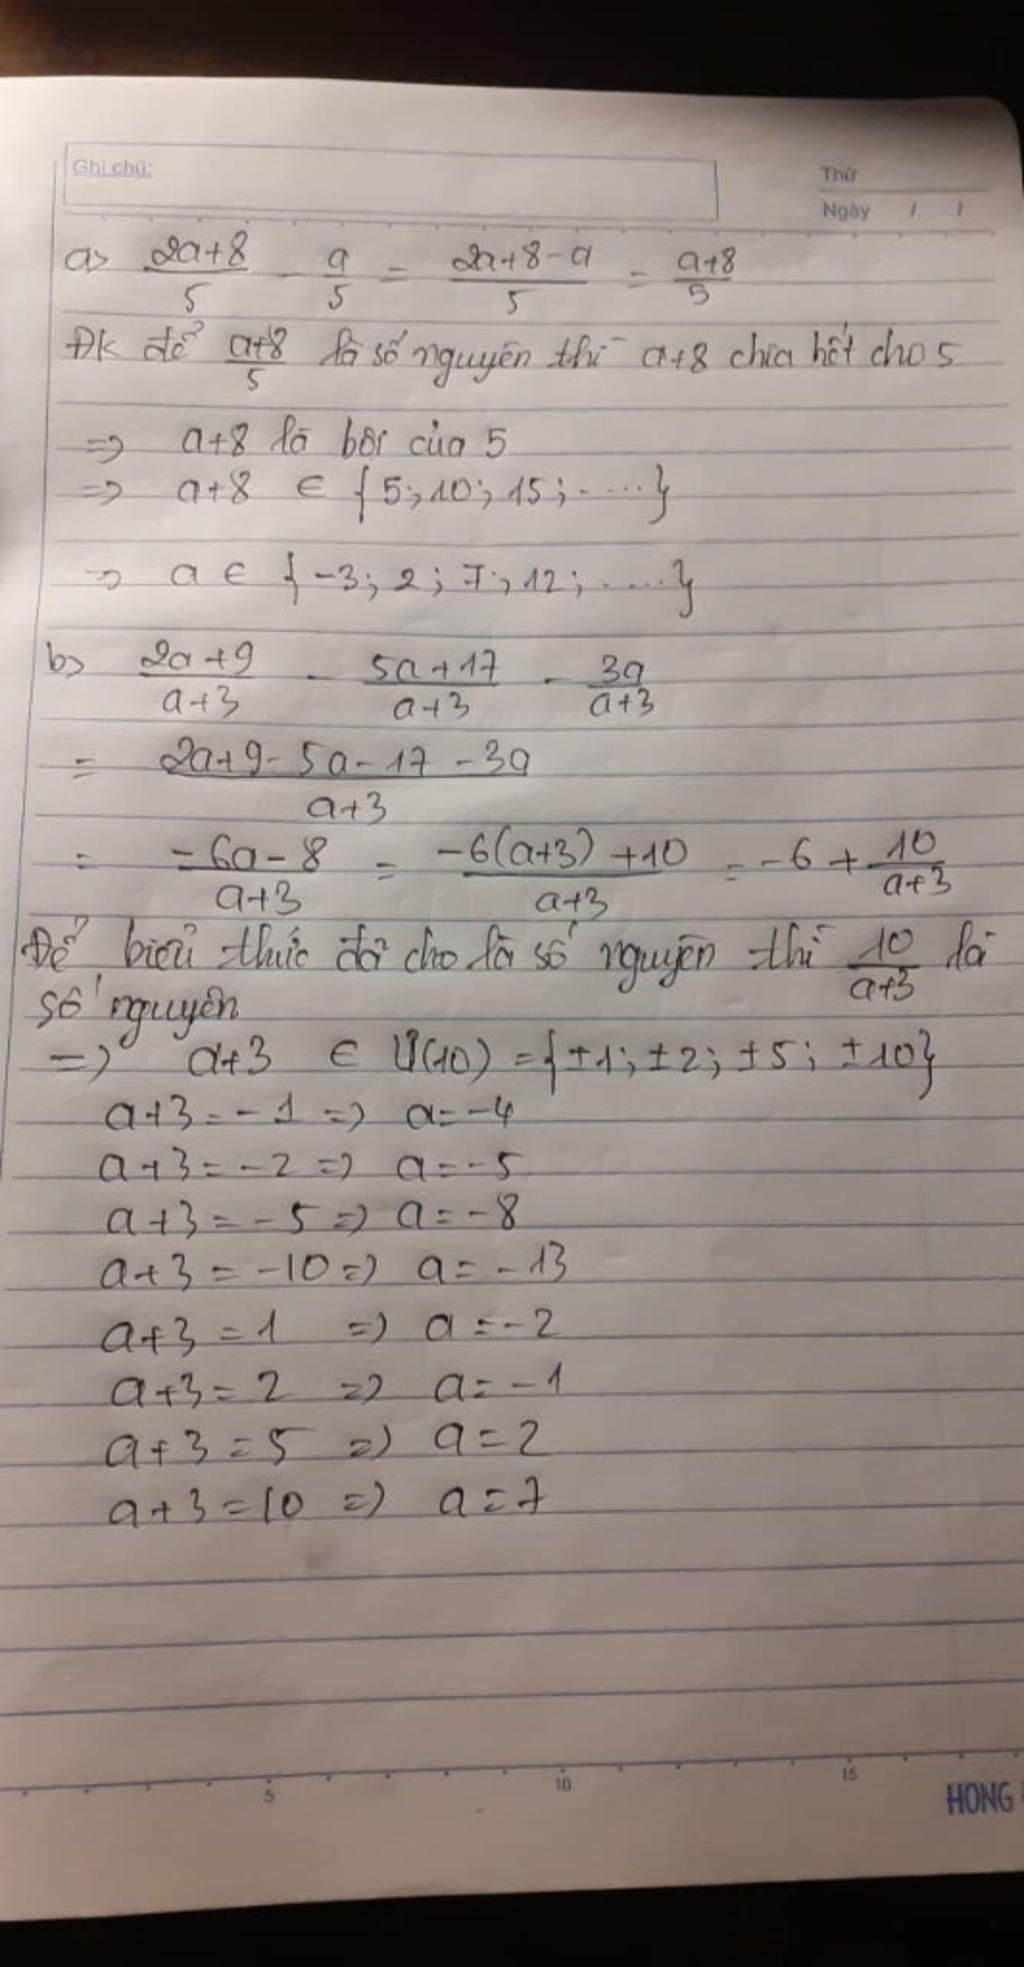 Ghi chú:
Thứ
Ngày / /
a> (2a+8)/5 - a/5 = (2a+8-a)/5 = (a+8)/5
Đk để (a+8)/5 là số nguyên thì a+8 chia hết cho 5
=> a+8 là bội của 5
=> a+8 ∈ {5; 10; 15; .....}
=> a ∈ {-3; 2; 7; 12; .....}
b> (2a+9)/(a+3) - (5a+17)/(a+3) - 3a/(a+3)
= (2a+9-5a-17-3a)/(a+3)
= (-6a-8)/(a+3) = (-6(a+3)+10)/(a+3) = -6 + 10/(a+3)
Để biểu thức đã cho là số nguyên thì 10/(a+3) là
số nguyên
=> a+3 ∈ Ư(10) = {±1; ±2; ±5; ±10}
a+3 = -1 => a = -4
a+3 = -2 => a = -5
a+3 = -5 => a = -8
a+3 = -10 => a = -13
a+3 = 1 => a = -2
a+3 = 2 => a = -1
a+3 = 5 => a = 2
a+3 = 10 => a = 7
5 10 15
HONG